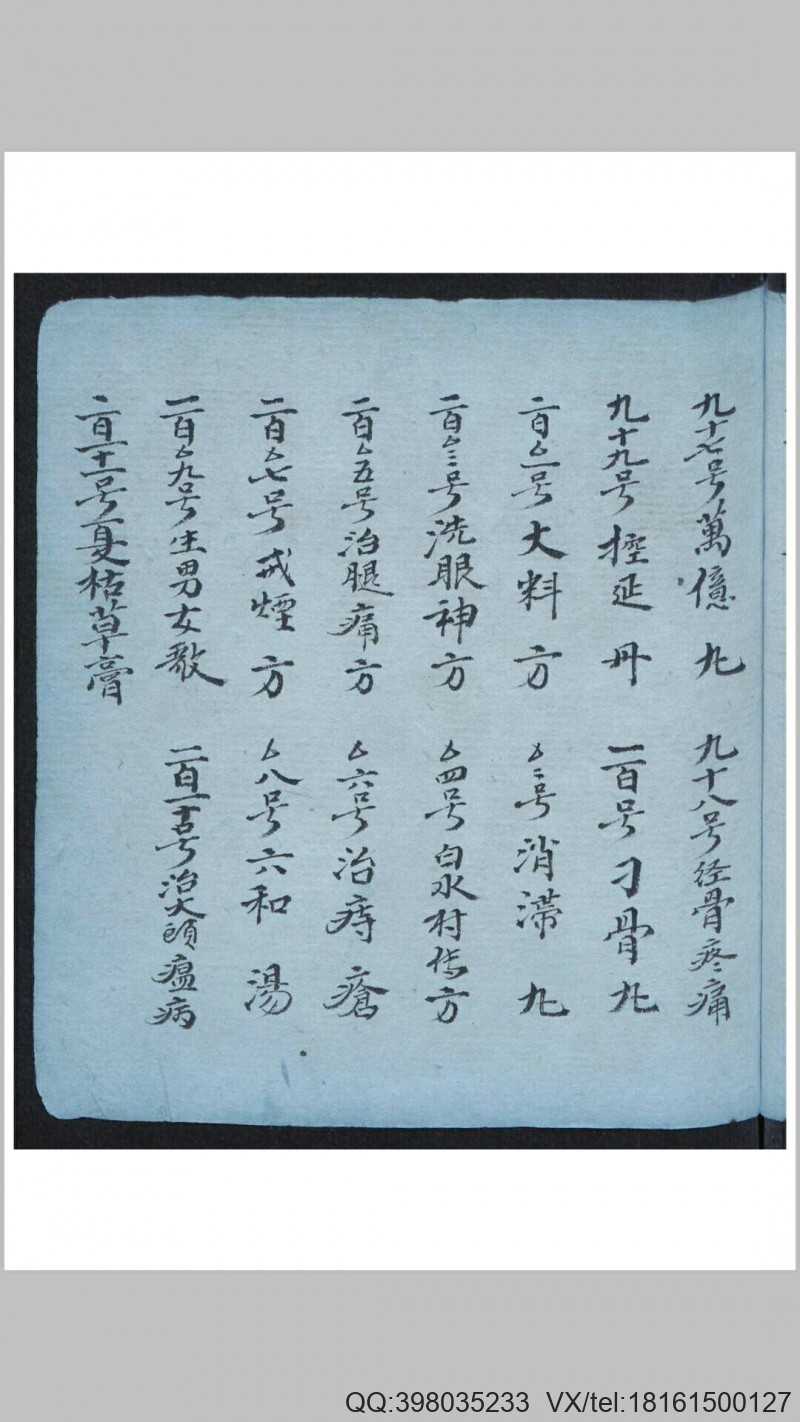 九十七号萬億丸 九十八号经骨疼痛
九十九号控延丹 一百号刁骨丸
一百厶一号大料方 厶二号消滞丸
一百厶三号洗眼神方 厶四号白水村传方
一百厶五号治腿痛方 厶六号治痔瘡
一百厶七号戒煙方 厶八号六和湯
一百厶九号生男女歌 一百一十号治大頭瘟病
一百十一号夏枯草膏
QQ:398035233 VX/tel:18161500127